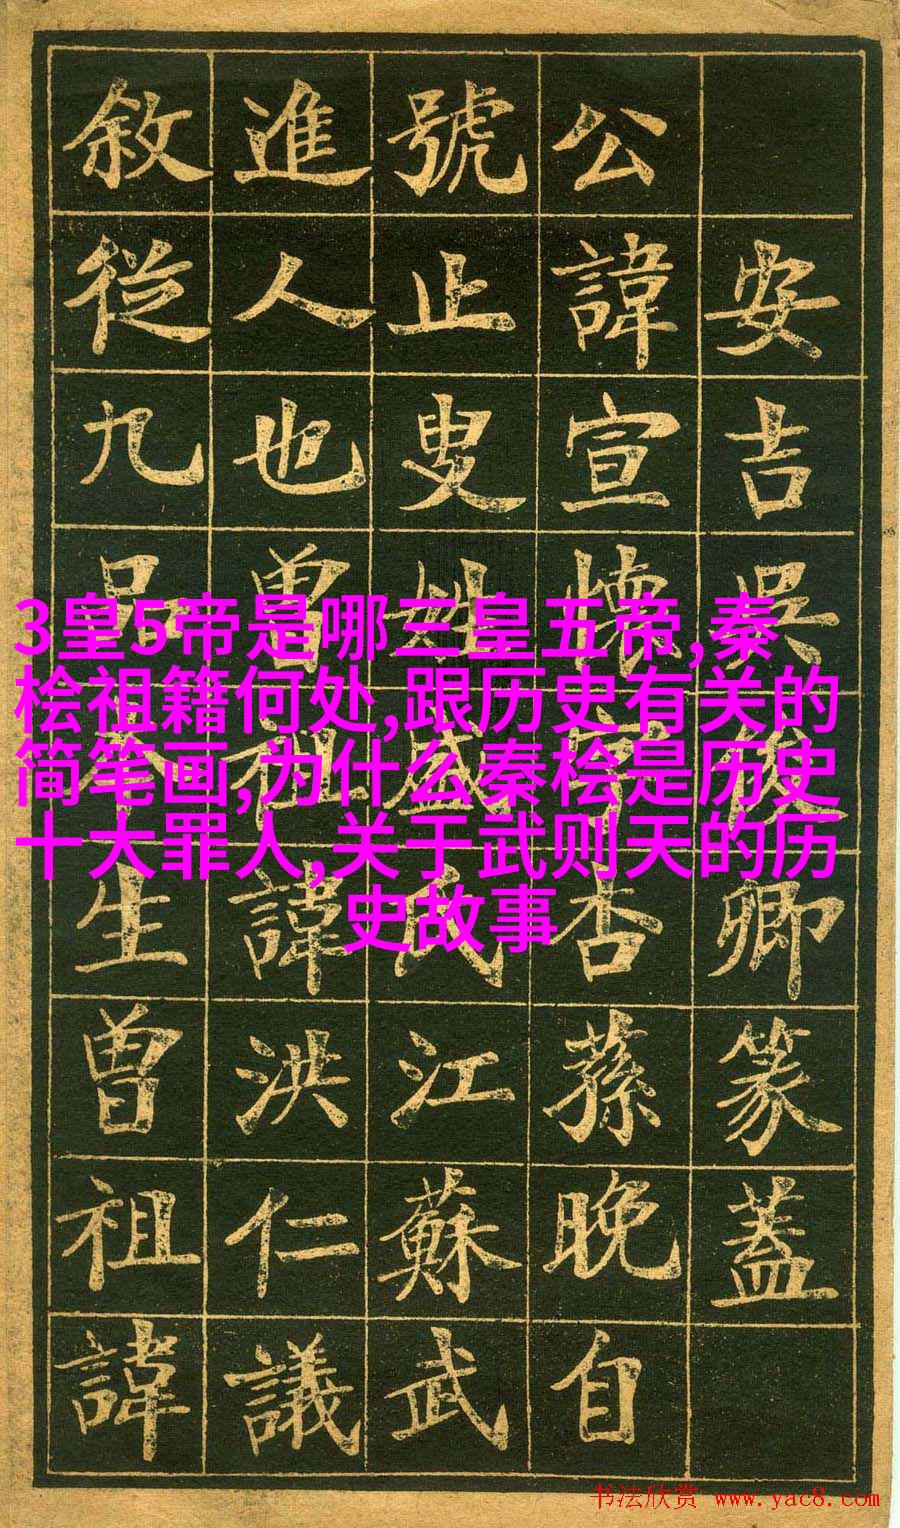 安吉吳俊卿篆蓋
公諱宣懷字杏蓀晚自
號止叟姓盛氏江蘇武
進人也曾祖諱洪仁議
敘從九品本生曾祖諱
3皇5帝是哪三皇五帝,秦
桧祖籍何处,跟历史有关的
简笔画,为什么秦桧是历史
十大罪人,关于武则天的历
史故事
书法欣赏 www.yac8.com